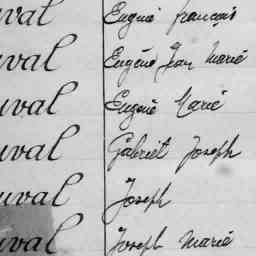 uval Eugéne françois
uval Eugéne Jean Marie
uval Eugéne Marie
uval Gabriel Joseph
uval Joseph
uval Joseph Marie